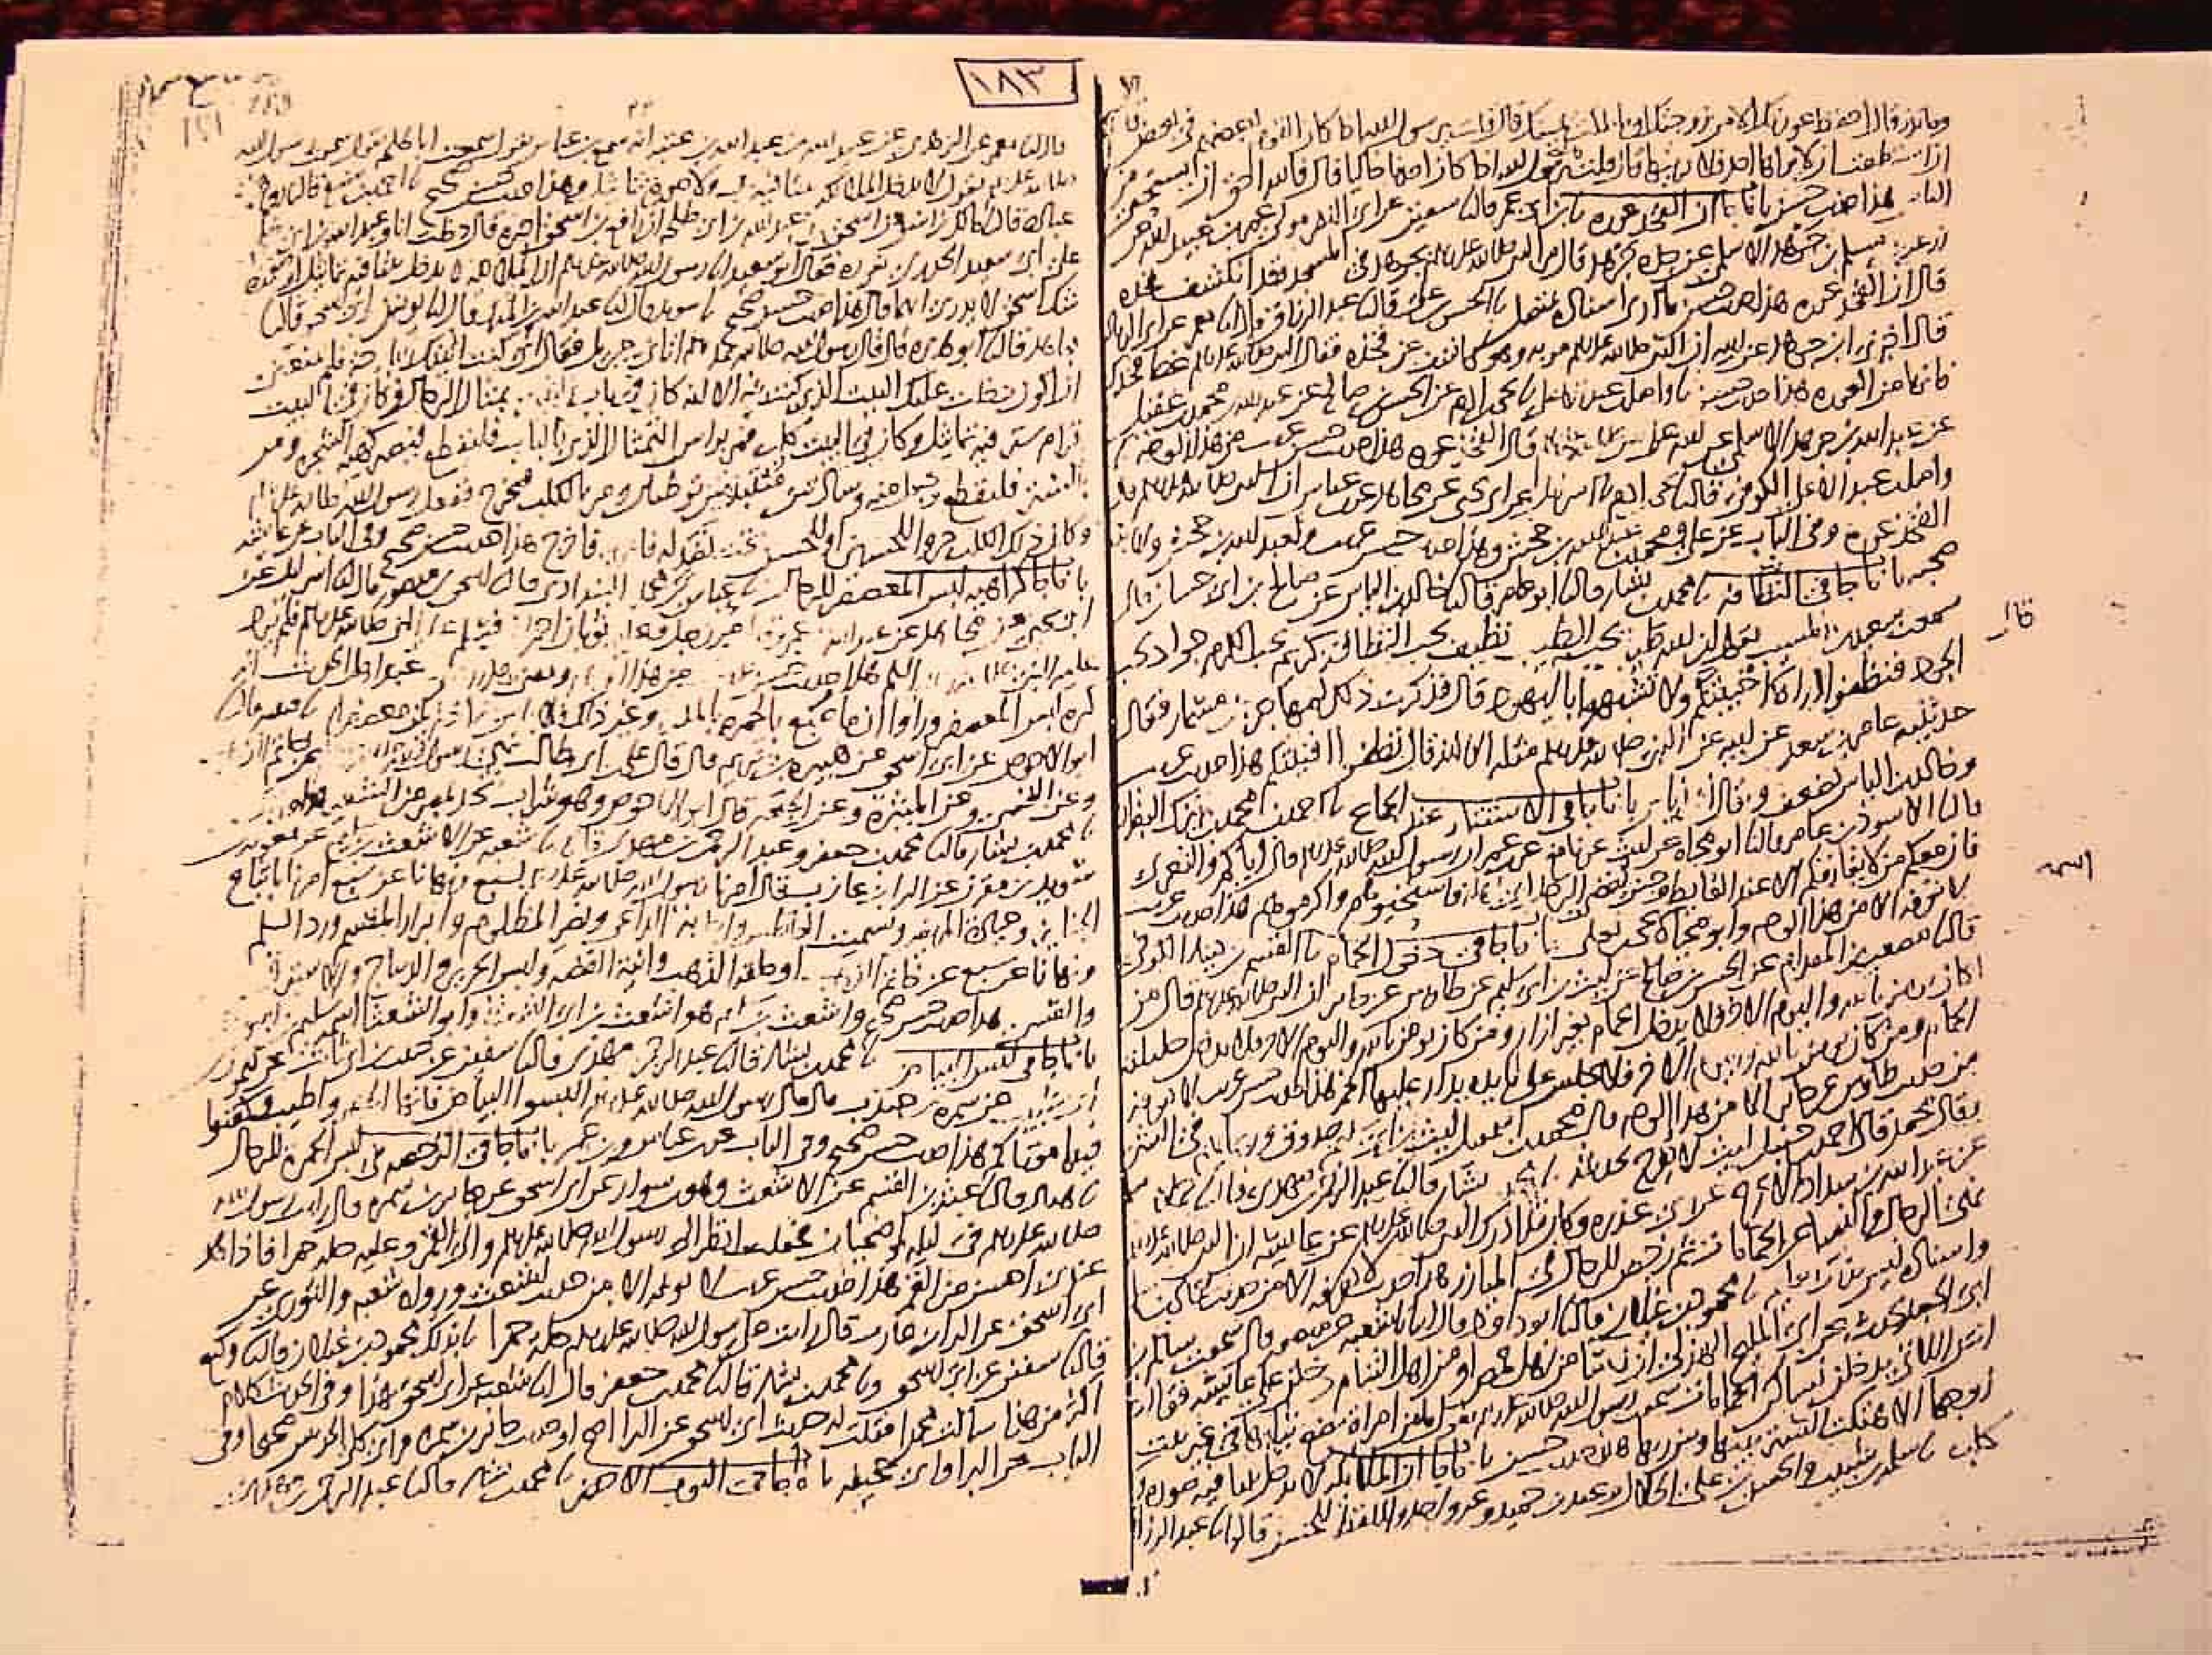 ١٨٣
وما نذر قال احفظ عورتك الا من زوجتك او ما ملكت يمينك قال قلت يرسول الله اذا كان القوم بعضهم في بعض قال
ان استطعت ان لا يراها احد فلا يرينها قال قلت يرسول الله اذا كان احدنا خاليا قال فالله احق ان يستحيى من
الناس هذا حديث حسن باب ما جا ان الفخذ عورة ابن ابي عمر قال سفين عن ابي النضر مولى عمر بن عبيد الله عن
زرعة بن مسلم بن جرهد الاسلمي عن جده جرهد قال مر النبي صلى الله عليه وسلم بجرهد في المسجد وقد انكشف فخذه
قال ان الفخذ عورة هذا حديث حسن ما ارى اسناده بمتصل الحسن بن علي قال عبد الرزاق قال معمر عن ابي الزناد
قال اخبرني ابن جرهد عن ابيه ان النبي صلى الله عليه وسلم مر به وهو كاشف عن فخذه فقال النبي صلى الله عليه وسلم غط فخذك
فانها من العورة هذا حديث حسن واصل بن عبد الاعلى يحيى بن ادم عن الحسن بن صالح عن عبد الله بن محمد بن عقيل
عن عبد الله بن جرهد الاسلمي عن ابيه عن النبي قال الفخذ عورة هذا حديث حسن غريب من هذا الوجه
واصل بن عبد الاعلى الكوفي قال يحيى بن ادم اسرائيل عن ابي يحيى عن مجاهد عن ابن عباس ان النبي صلى الله عليه وسلم قال
الفخذ عورة وفي الباب عن علي ومحمد بن عبد الله بن جحش وهذا حديث حسن غريب ولعبد الله بن جحش
صحبة باب ما جا في النظافة محمد بن بشار قال ابو عامر قال خالد بن الياس عن صالح بن ابي حسان قال
سمعت سعيد بن المسيب يقول ان الله طيب يحب الطيب نظيف يحب النظافة كريم يحب الكرم جواد يحب
الجود فنظفوا اراه قال افنيتكم ولا تشبهوا باليهود قال فذكرت ذلك لمهاجر بن مسمار فقال
قال
حدثنيه عامر بن سعد عن ابيه عن النبي صلى الله عليه وسلم مثله الا انه قال نظفوا افنيتكم هذا حديث غريب
وخالد بن الياس يضعف باب ما جا في الاستتار عند الجماع احمد بن محمد بن نيزك البغدادي
قال الاسود بن عامر قال ابو محياه عن ليث عن نافع عن ابن عمر ان رسول الله صلى الله عليه وسلم قال اياكم والتعري
فان معكم من لا يفارقكم الا عند الغايط وحين يفضي الرجل الى اهله فاستحيوهم واكرموهم هذا حديث غريب
لا نعرفه الا من هذا الوجه وابو محياة يحيى بن يعلى باب ما جا في دخول الحمام القسم بن دينار الكوفي
قال مصعب بن المقدام عن الحسن بن صالح عن ليث بن ابي سليم عن طاوس عن جابر ان النبي صلى الله عليه وسلم قال من
كان يومن بالله واليوم الاخر فلا يدخل الحمام بغير ازار ومن كان يومن بالله واليوم الاخر فلا يدخل حليلته
الحمام ومن كان يومن بالله واليوم الاخر فلا يجلس على مايدة يدار عليها الخمر هذا حديث حسن غريب لا نعرفه
من حديث طاوس عن جابر الا من هذا الوجه قال محمد بن اسمعيل ليث بن ابي سليم صدوق وربما يهم في الشي
قال محمد قال احمد بن حنبل ليث لا يفرح بحديثه محمد بن بشار قال عبد الرحمن بن مهدي حماد بن سلمة
عن عبد الله بن شداد الاعرج عن ابي عذره وكان قد ادرك النبي صلى الله عليه وسلم عن عايشة ان النبي صلى الله عليه وسلم
نهى الرجال والنسا عن الحمامات ثم رخص للرجال في الميازر هذا حديث لا نعرفه الا من حديث حماد بن سلمة
واسناده ليس بذاك محمود بن غيلان قال ابو داود قال شعبه عن منصور قال سمعت سالم بن
ابي الجعد يحدث عن ابي المليح الهذلي ان نسا من اهل حمص او من اهل الشام دخلن على عايشة فقالت
انتن اللاتي يدخلن نساكن الحمامات سمعت رسول الله صلى الله عليه وسلم يقول ما من امراة تضع ثيابها في غير بيت
زوجها الا هتكت الستر بينها وبين ربها هذا حديث حسن باب ما جا ان الملايكة لا تدخل بيتا فيه صورة ولا
كلب سلمة بن شبيب والحسن بن علي الخلال وعبد بن حميد وغير واحد واللفظ للحسن قالوا عبد الرزاق
قال معمر عن الزهري عن عبيد الله بن عبد الله بن عتبة انه سمع بن عباس يقول سمعت ابا طلحة يقول سمعت رسول الله
صلى الله عليه وسلم يقول لا تدخل الملايكة بيتا فيه كلب ولا صورة تماثيل وهذا حديث حسن صحيح احمد بن منيع قال روح بن
عبادة قال مالك بن انس عن اسحق بن عبد الله بن ابي طلحة ان رافع بن اسحق اخبره قال دخلت انا وعبد الله بن ابي طلحة
على ابي سعيد الخدري نعوده فقال ابو سعيد رسول الله صلى الله عليه وسلم ان الملايكة لا تدخل بيتا فيه تماثيل او صورة
شك اسحق لا يدري ايهما قال هذا حديث حسن صحيح سويد قال عبد الله بن المبارك قال يونس بن ابي اسحق قال
مجاهد قال ابو هريره قال قال رسول الله صلى الله عليه وسلم اتاني جبريل فقال اني كنت اتيتك البارحة فلم يمنعني
ان اكون دخلت عليك البيت الذي كنت فيه الا انه كان في باب البيت تمثال الرجال وكان في البيت
قرام ستر فيه تماثيل وكان في البيت كلب فمر براس التمثال الذي بالباب فليقطع فيصير كهيئة الشجرة ومر
بالستر فليقطع ويجعل منه وسادتين منتبذتين توطيان ومر بالكلب فيخرج ففعل رسول الله صلى الله عليه وسلم
وكان ذلك الكلب جروا للحسين او للحسن تحت نضد له فامر به فاخرج هذا حديث حسن صحيح وفي الباب عن عايشة
باب ما جا كراهية لبس المعصفر للرجال عباس بن محمد البغدادي قال اسحق بن منصور قال اسرائيل عن
ابي يحيى عن مجاهد عن عبد الله بن عمرو قال مر رجل وعليه ثوبان احمران فسلم على النبي صلى الله عليه وسلم فلم يرد
عليه النبي السلم هذا حديث حسن غريب من هذا الوجه ومعنى هذا الحديث عند اهل الحديث انه
كره لبس المعصفر وراوا ان ما صبغ بالحمرة بالمدر وغير ذلك فلا باس به اذا لم يكن معصفرا قتيبه قال
ابو الاحوص عن ابي اسحق عن هبيرة بن يريم قال قال علي بن ابي طالب نهى رسول الله عن خاتم الذهب
وعن القسي وعن الميثرة وعن الجعة قال ابو الاحوص وهو شراب يتخذ بمصر من الشعير
محمد بن بشار قال محمد بن جعفر وعبد الرحمن بن مهدي قالا شعبه عن الاشعث بن سليم عن معوية بن
سويد بن مقرن عن البرا بن عازب قال امرنا رسول الله صلى الله عليه وسلم بسبع ونهانا عن سبع امرنا باتباع
الجنايز وعيادة المريض وتشميت العاطس واجابة الداعي ونصر المظلوم وابرار المقسم ورد السلم
ونهانا عن سبع عن خاتم الذهب او حلقة الذهب وانية الفضة ولبس الحرير والديباج والاستبرق
والقسي هذا حديث حسن صحيح واشعث بن سليم هو اشعث بن ابي الشعثا وابو الشعثا اسمه سليم بن اسود
باب ما جا في لبس البياض محمد بن بشار قال عبد الرحمن بن مهدي قال سفين عن حبيب بن ابي ثابت عن ميمون بن
ابي شبيب عن سمرة بن جندب قال قال رسول الله صلى الله عليه وسلم البسوا البياض فانها اطهر واطيب وكفنوا
فيها موتاكم هذا حديث حسن صحيح وفي الباب عن ابن عباس وبن عمر باب ما جا في الرخصة في لبس الحمرة للرجال
هناد قال عبثر بن القسم عن الاشعث وهو بن سوار عن ابي اسحق عن جابر بن سمرة قال رايت رسول الله
صلى الله عليه وسلم في ليلة اضحيان فجعلت انظر الى رسول الله صلى الله عليه وسلم والى القمر وعليه حلة حمرا فاذا هو
عندي احسن من القمر هذا حديث حسن غريب لا نعرفه الا من حديث الاشعث وروى شعبه والثوري عن
ابي اسحق عن البرا بن عازب قال رايت على رسول الله صلى الله عليه وسلم حلة حمرا بذلك محمود بن غيلان قال وكيع
قال سفين عن ابي اسحق ومحمد بن بشار قال محمد بن جعفر قال شعبه عن ابي اسحق بهذا وفي الحديث كلام
اكثر من هذا سالت محمدا فقلت له حديث ابي اسحق عن البرا اصح او حديث جابر بن سمرة فراى كلا الحديثين صحيحا وفي
الباب عن البرا وابي جحيفه باب ما جا في الثوب الاخضر محمد بن بشار قال عبد الرحمن بن مهدي